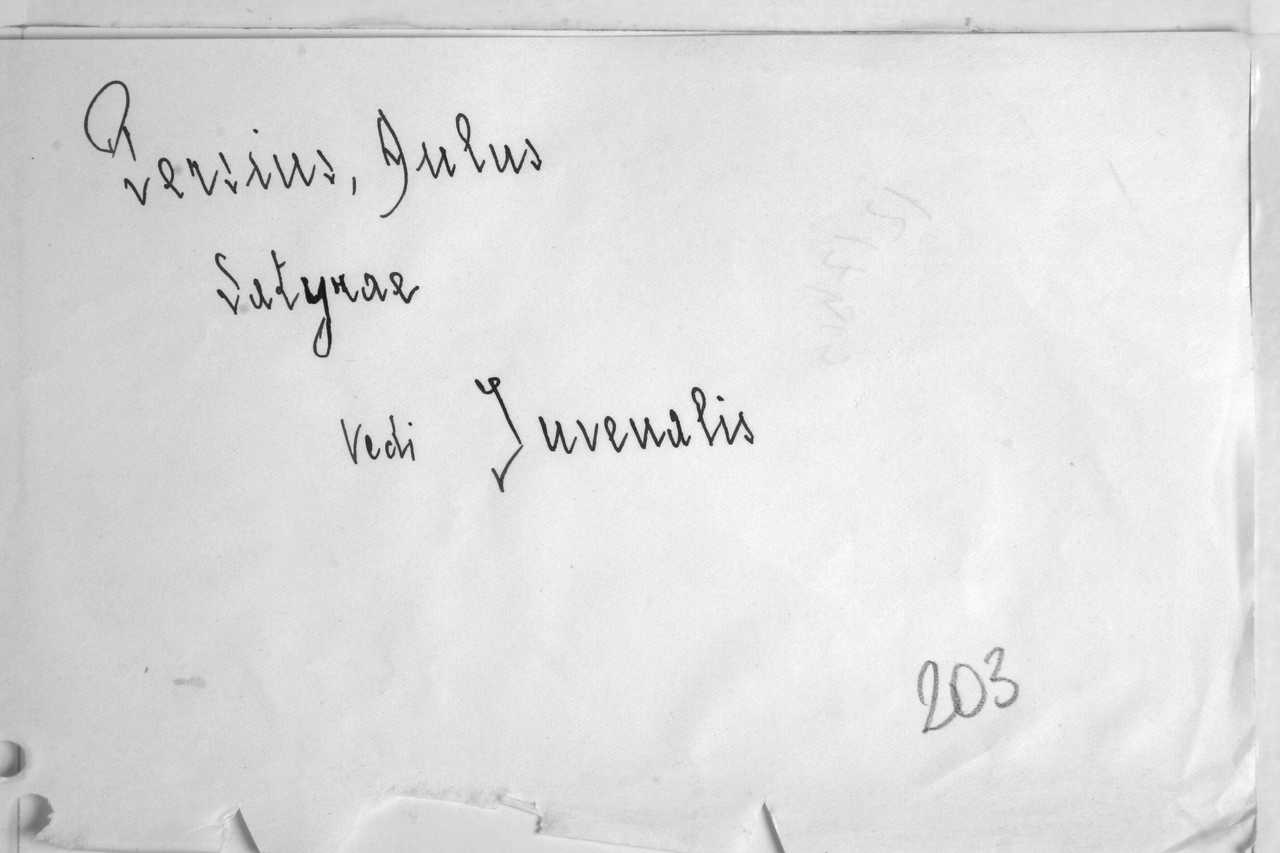 Persius, Aulus
Satyrae
Vedi Juvenalis
203